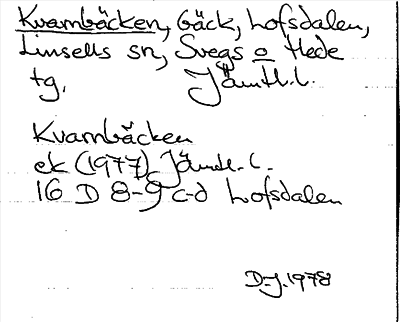 Kvarnbäcken, bäck, Lofsdalen,
Linsells sn, Svegs o Hede
tg, Jämtl. l.
Kvarnbäcken
ek (1977) Jämtl. l.
16 D 8-9 c-d Lofsdalen
D-J. 1978